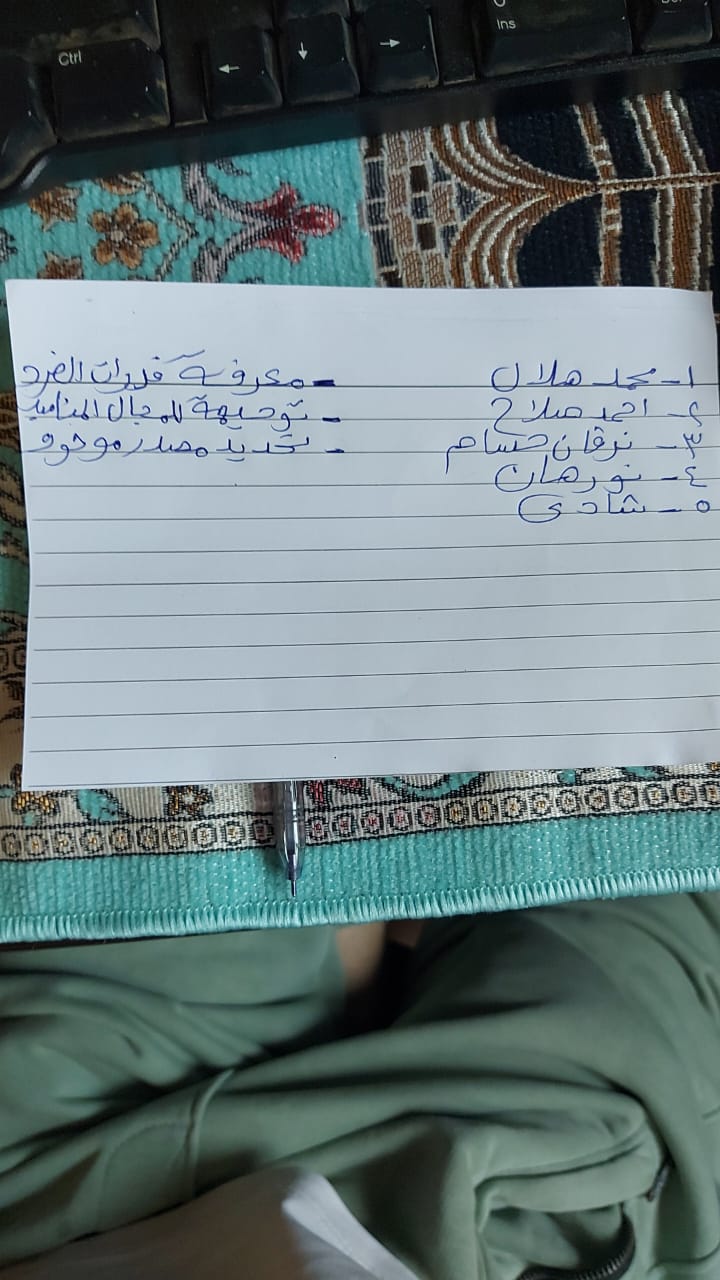 Ctrl
←
↓
→
Ins
١- محمد هلال
٢- احمد صلاح
٣- نرڤان حسام
٤- نورهان
٥- شادى
- معرفة قدرات الفرد
- توجيهة للمجال المناسب
- تحديد مصدر موخوف